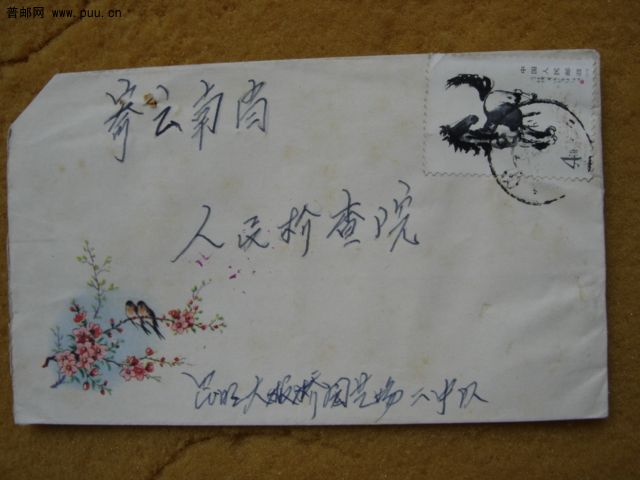 普邮网 www.puu.cn
寄云南省
人民检查院
昆明大板桥园艺场六中队
中国人民邮政
4分